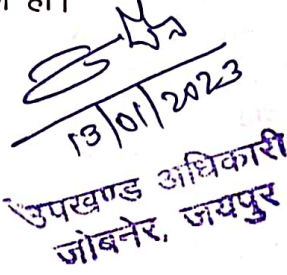 हो।
13/01/2023
उपखण्ड अधिकारी
जोबनेर, जयपुर